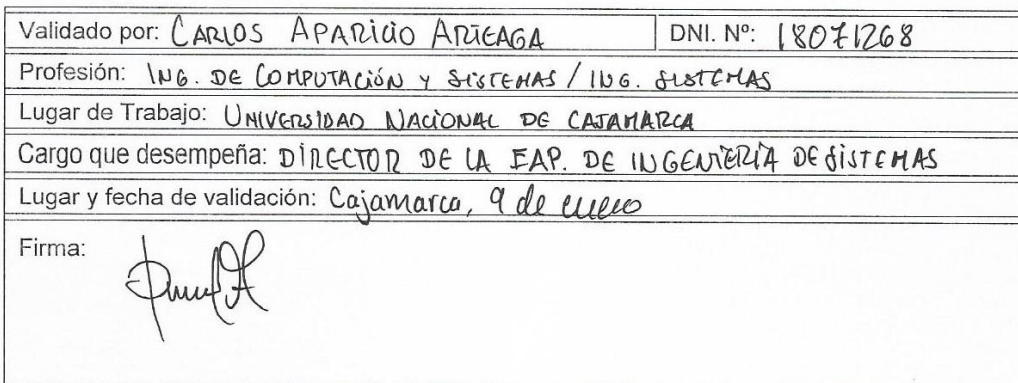 Validado por: CARLOS APARICIO ARTEAGA DNI. Nº: 18071268
Profesión: ING. DE COMPUTACIÓN Y SISTEMAS / ING. SISTEMAS
Lugar de Trabajo: UNIVERSIDAD NACIONAL DE CAJAMARCA
Cargo que desempeña: DIRECTOR DE LA EAP. DE INGENIERÍA DE SISTEMAS
Lugar y fecha de validación: Cajamarca, 9 de enero
Firma: